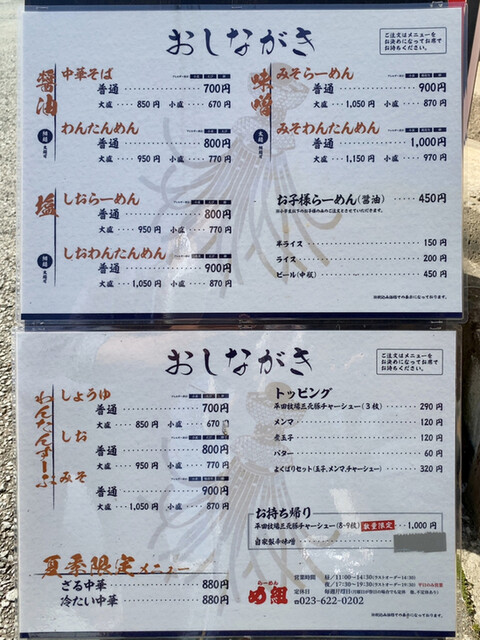 おしながき
ご注文はメニューを
お決めになってお席で
お待ちください。
醤油
中華そば
普通 ………… 700円
大盛 …… 850円 小盛 …… 670円
わんたんめん
普通 ………… 800円
大盛 …… 950円 小盛 …… 770円
塩
しおらーめん
普通 ………… 800円
大盛 …… 950円 小盛 …… 770円
しおわんたんめん
普通 ………… 900円
大盛 …… 1,050円 小盛 …… 870円
味噌
みそらーめん
普通 ………… 900円
大盛 …… 1,050円 小盛 …… 870円
みそわんたんめん
普通 ………… 1,000円
大盛 …… 1,150円 小盛 …… 970円
お子様らーめん(醤油) …… 450円
半ライス ………… 150円
ライス ………… 200円
ビール(中瓶) ………… 450円
おしながき
ご注文はメニューを
お決めになってお席で
お待ちください。
わんたんすーぷ
しょうゆ
普通 ………… 700円
大盛 …… 850円 小盛 …… 670円
しお
普通 ………… 800円
大盛 …… 950円 小盛 …… 770円
みそ
普通 ………… 900円
大盛 …… 1,050円 小盛 …… 870円
夏季限定メニュー
ざる中華 ………… 880円
冷たい中華 ………… 880円
トッピング
平田牧場三元豚チャーシュー(3枚) …… 290円
メンマ ………… 120円
煮玉子 ………… 120円
バター ………… 60円
よくばりセット(玉子、メンマ、チャーシュー) …… 320円
お持ち帰り
平田牧場三元豚チャーシュー(8〜9枚) 数量限定 … 1,000円
自家製辛味噌 …………
らーめん
め組
営業時間 昼/11:00〜14:30(ラストオーダー14:30)
夜/17:30〜19:30(ラストオーダー19:30) 平日のみ営業
定休日 毎週月曜日
☎023-622-0202